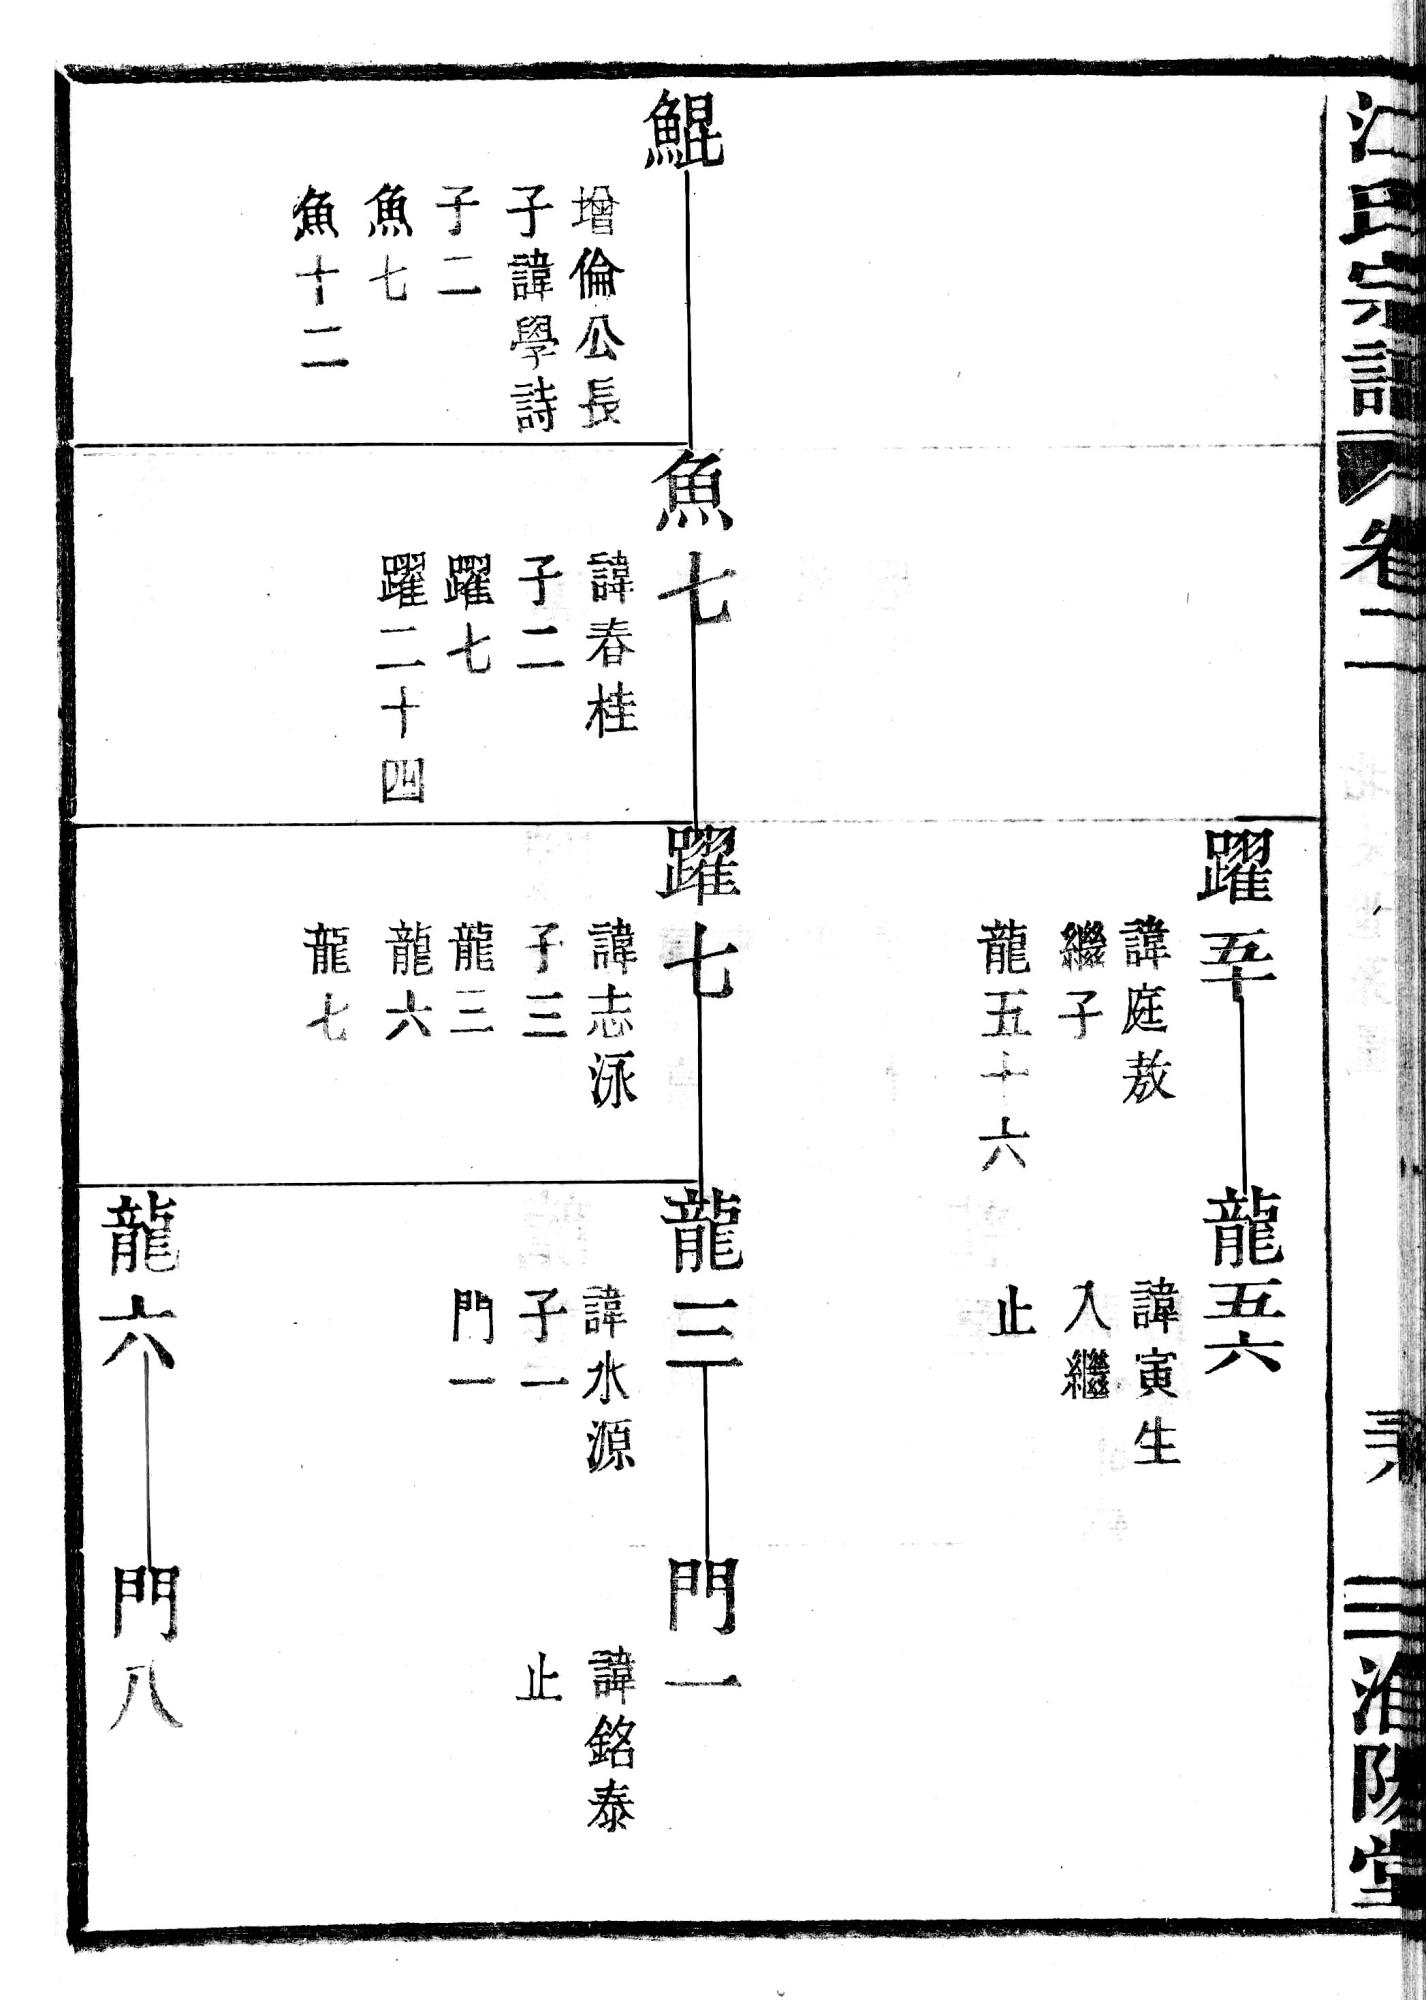 江氏宗譜
卷二
淮陽堂
躍五十
諱庭敖
繼子
龍五十六
龍五六
諱寅生
入繼
止
鯤
增倫公長
子諱學詩
子二
魚七
魚十二
魚七
諱春桂
子二
躍七
躍二十四
躍七
諱志泳
子三
龍三
龍六
龍七
龍三
諱水源
子一
門一
門一
諱銘泰
止
龍六
門八